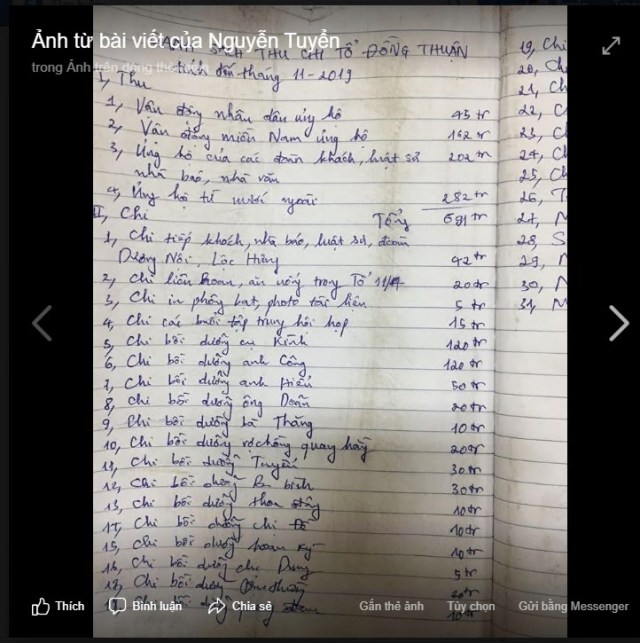 Ảnh từ bài viết của Nguyễn Tuyển
trong Ảnh trên dòng thời gian
SINH THU CHI TỔ ĐỒNG THUẬN
tính đến tháng 11-2019
I, Thu
1, Vận động nhân dân ủng hộ 45 tr
2, Vận động miền Nam ủng hộ 162 tr
3, Ủng hộ của các đoàn khách, luật sư 202 tr
nhà báo, nhà văn
4, Ủng hộ từ nước ngoài 282 tr
Tổng 691 tr
II, Chi
1, Chi tiếp khách, nhà báo, luật sư, đoàn
Dương Nội, Lộc Hưng 42 tr
2, Chi liên hoan, ăn uống trong Tổ 20 tr
3, Chi in phông bạt, photo tài liệu 5 tr
4, Chi các buổi tập trung hội họp 15 tr
5, Chi bồi dưỡng cụ Kình 120 tr
6, Chi bồi dưỡng anh Công 120 tr
7, Chi bồi dưỡng anh Hiểu 50 tr
8, Chi bồi dưỡng ông Doãn 20 tr
9, Chi bồi dưỡng bà Thăng 10 tr
10, Chi bồi dưỡng vợ chồng quay 20 tr
11, Chi bồi dưỡng Tuyển 30 tr
12, Chi bồi dưỡng Ba bình 30 tr
13, Chi bồi dưỡng 10 tr
Chi bồi dưỡng chị 10 tr
15, Chi bồi dưỡng hoan kỷ 10 tr
16, Chi bồi dưỡng chị Dung 5 tr
17, Chi bồi dưỡng 20 tr
Chi bồi dưỡng 10 tr
19, Chi
20,
21, Ch
22, C
23, C
24, Cl
25, C
26, T
27, M
28, S
29,
30, N
31, M
Thích Bình luận Chia sẻ Gắn thẻ ảnh Tùy chọn Gửi bằng Messenger